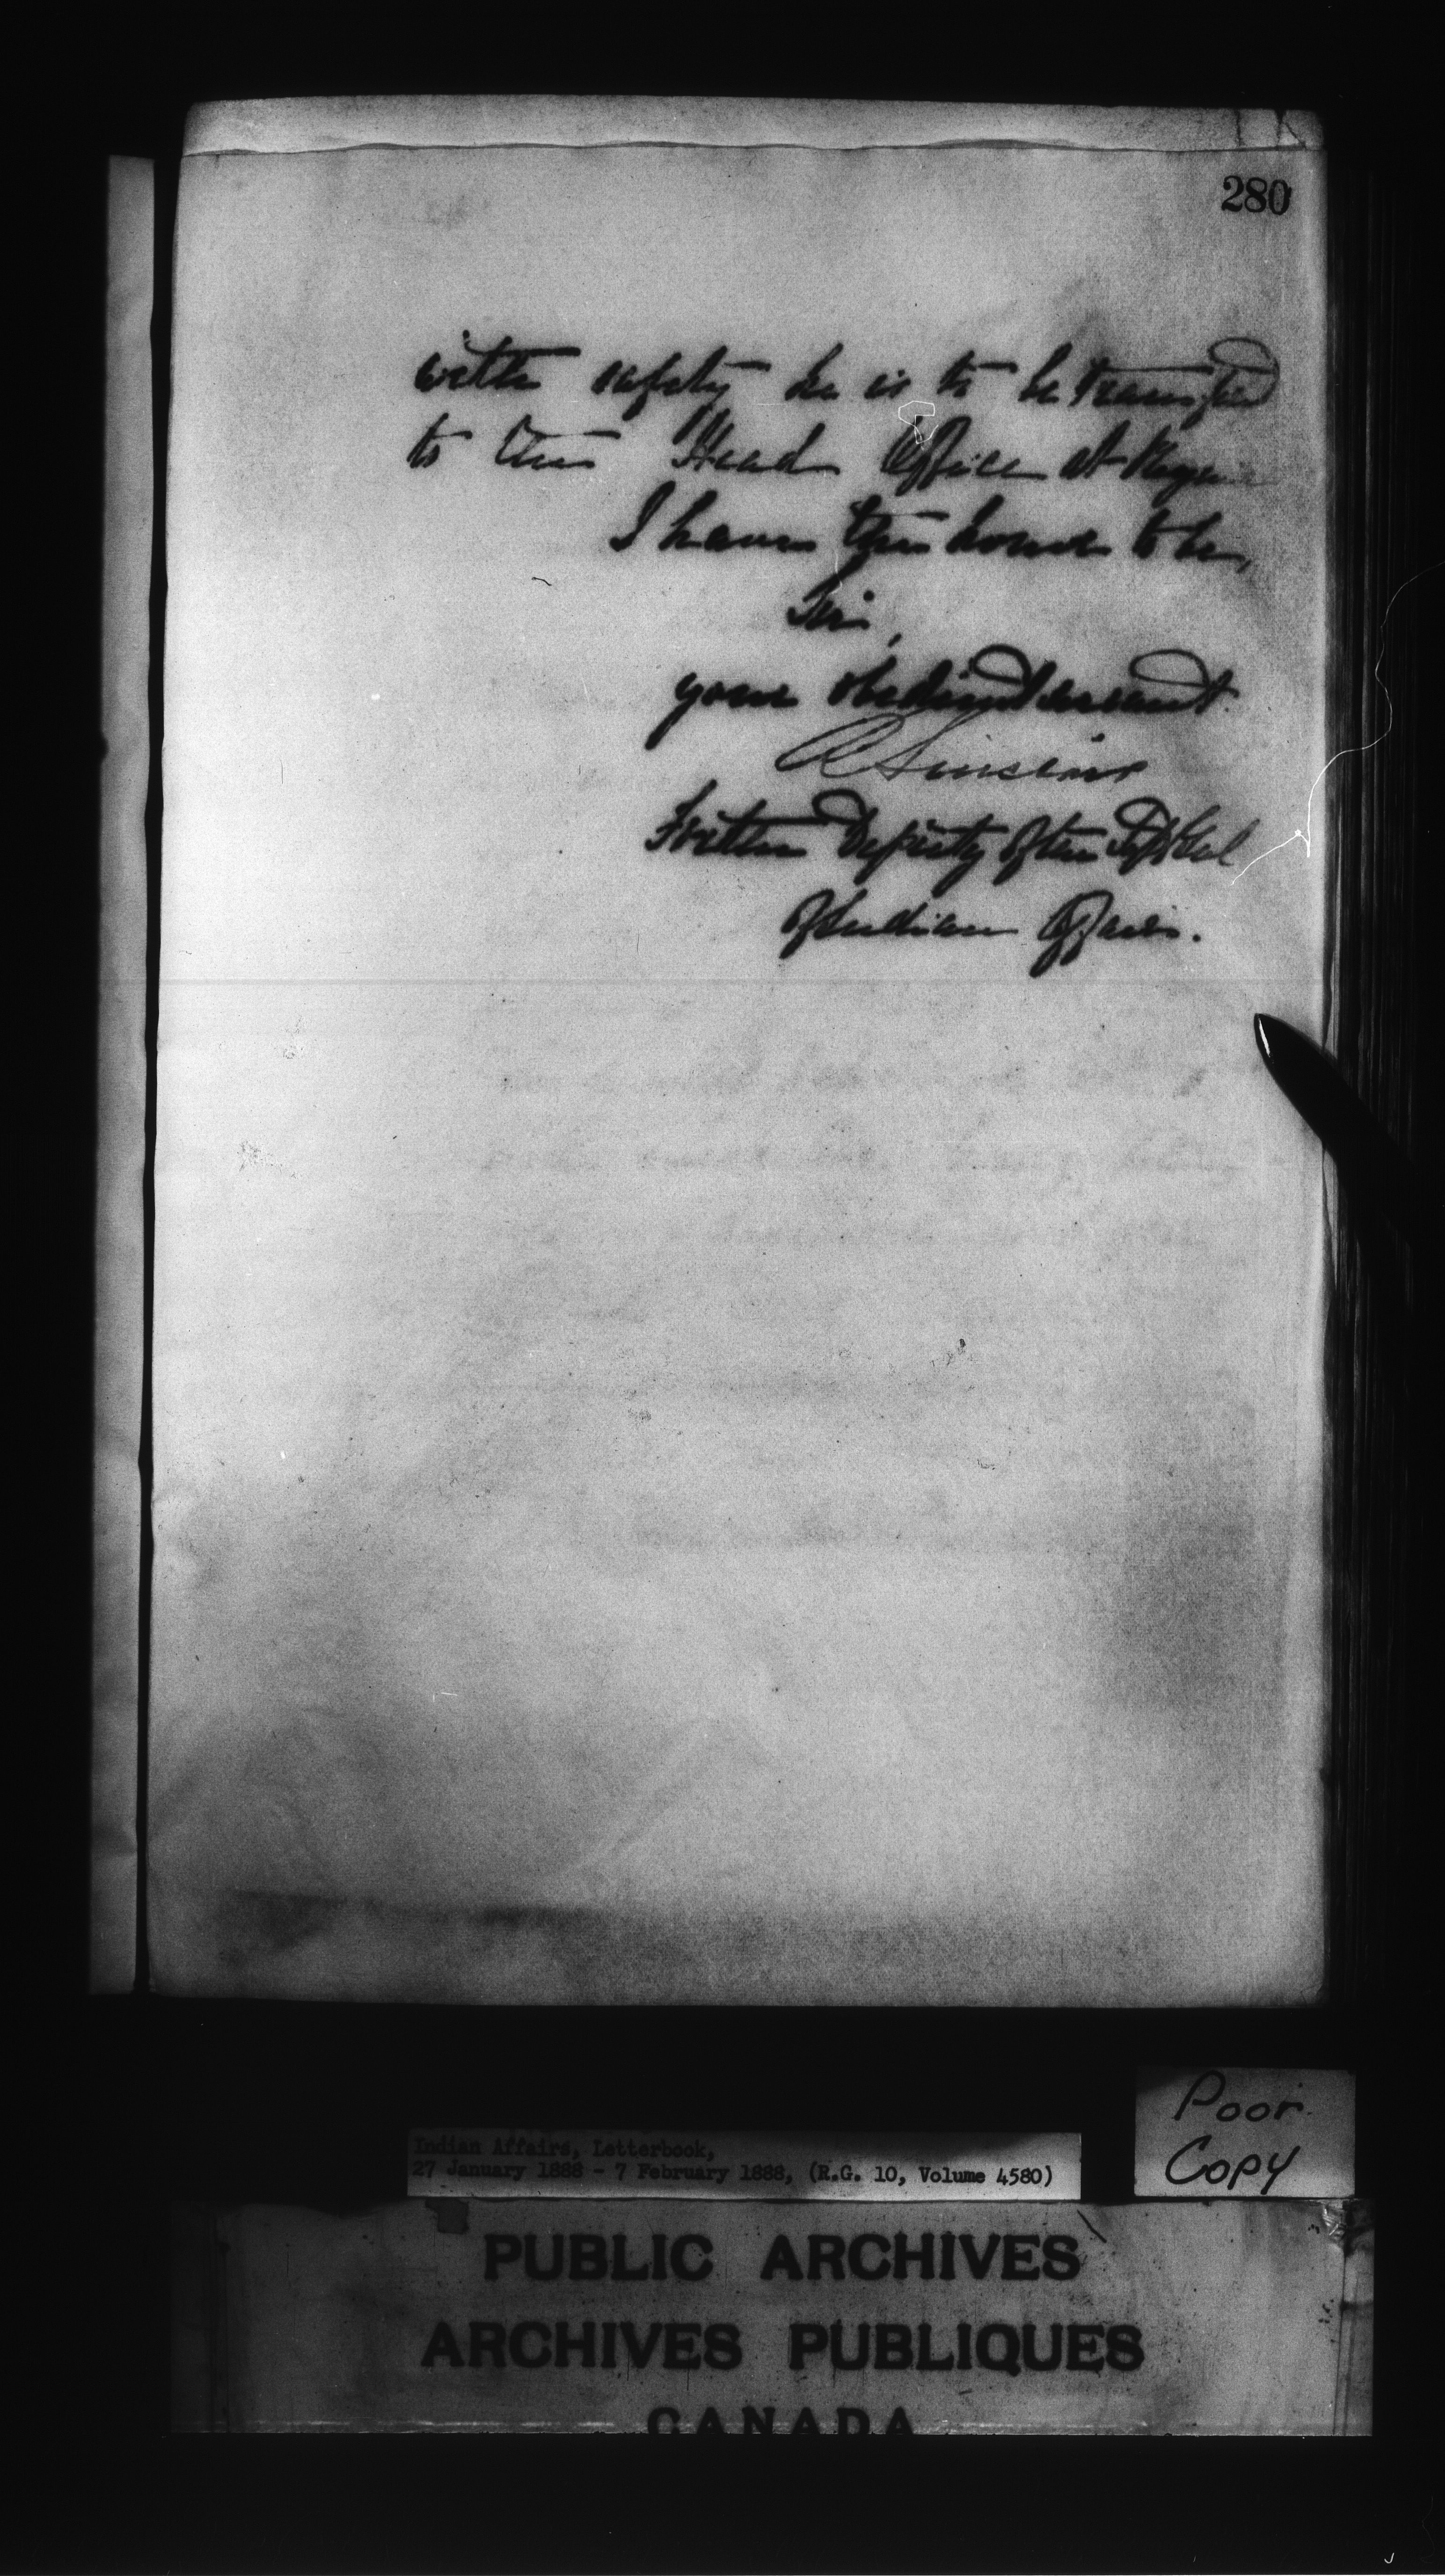 280
with safety he is to be transferred
to the Head Office at Regina
I have the honor to be,
Sir,
your obedient servant.
R Sinclair
For the Deputy of the Supt Genl
of Indian Affairs.
Poor
Copy
Indian Affairs, Letterbook,
27 January 1888 - 7 February 1888, (R.G. 10, Volume 4580)
PUBLIC ARCHIVES
ARCHIVES PUBLIQUES
CANADA